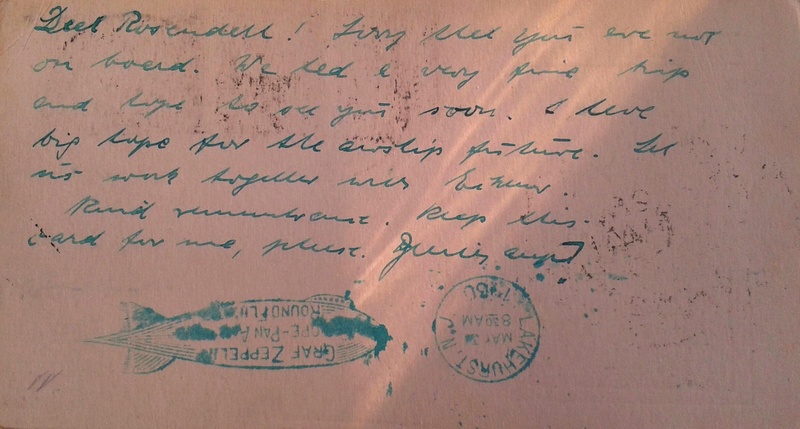 Deer Rosendell! Sorry that you are not
on board. We had a very fine trip
and hope to see you soon. I have
big hope for the airship future. Let
us work together with Eckener.
Kind remembrance. Keep this
card for me, please.
GRAF ZEPPELIN
OPE-PAN A
ROUND FL
LAKEHURST. N.J.
MAY 31
8 30 AM